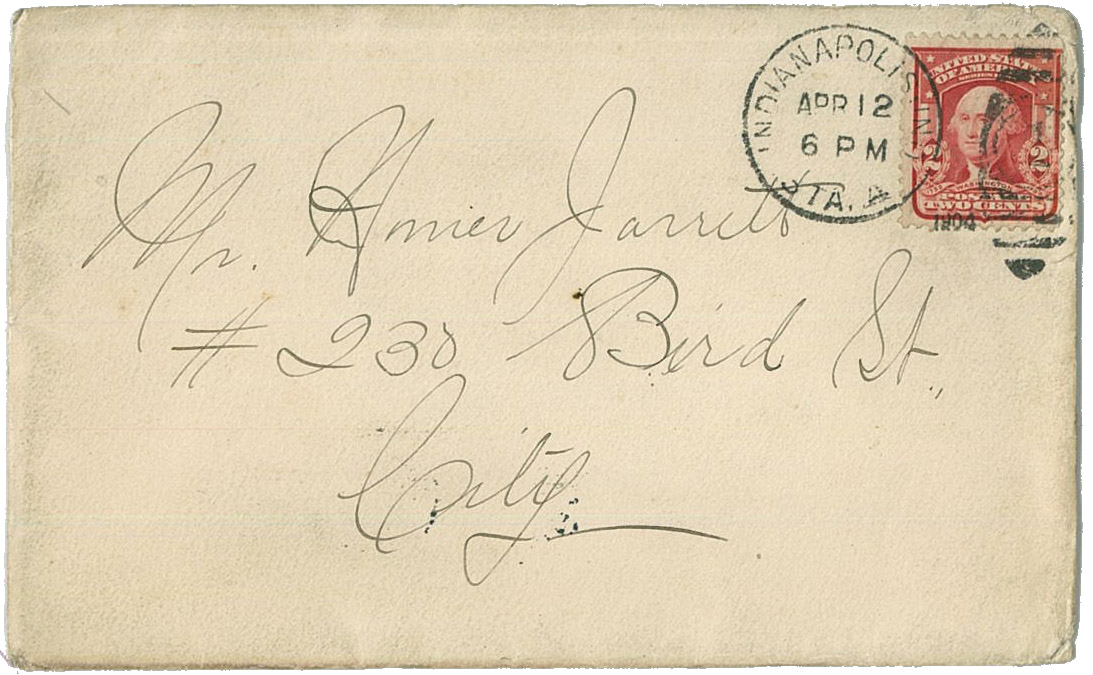 INDIANAPOLIS, IND.
APR 12
6 PM
STA. A
1904
UNITED STATES
OF AMERICA
2 2
WASHINGTON
TWO CENTS
Mr. Homer Jarrett
# 230 Bird St.,
City